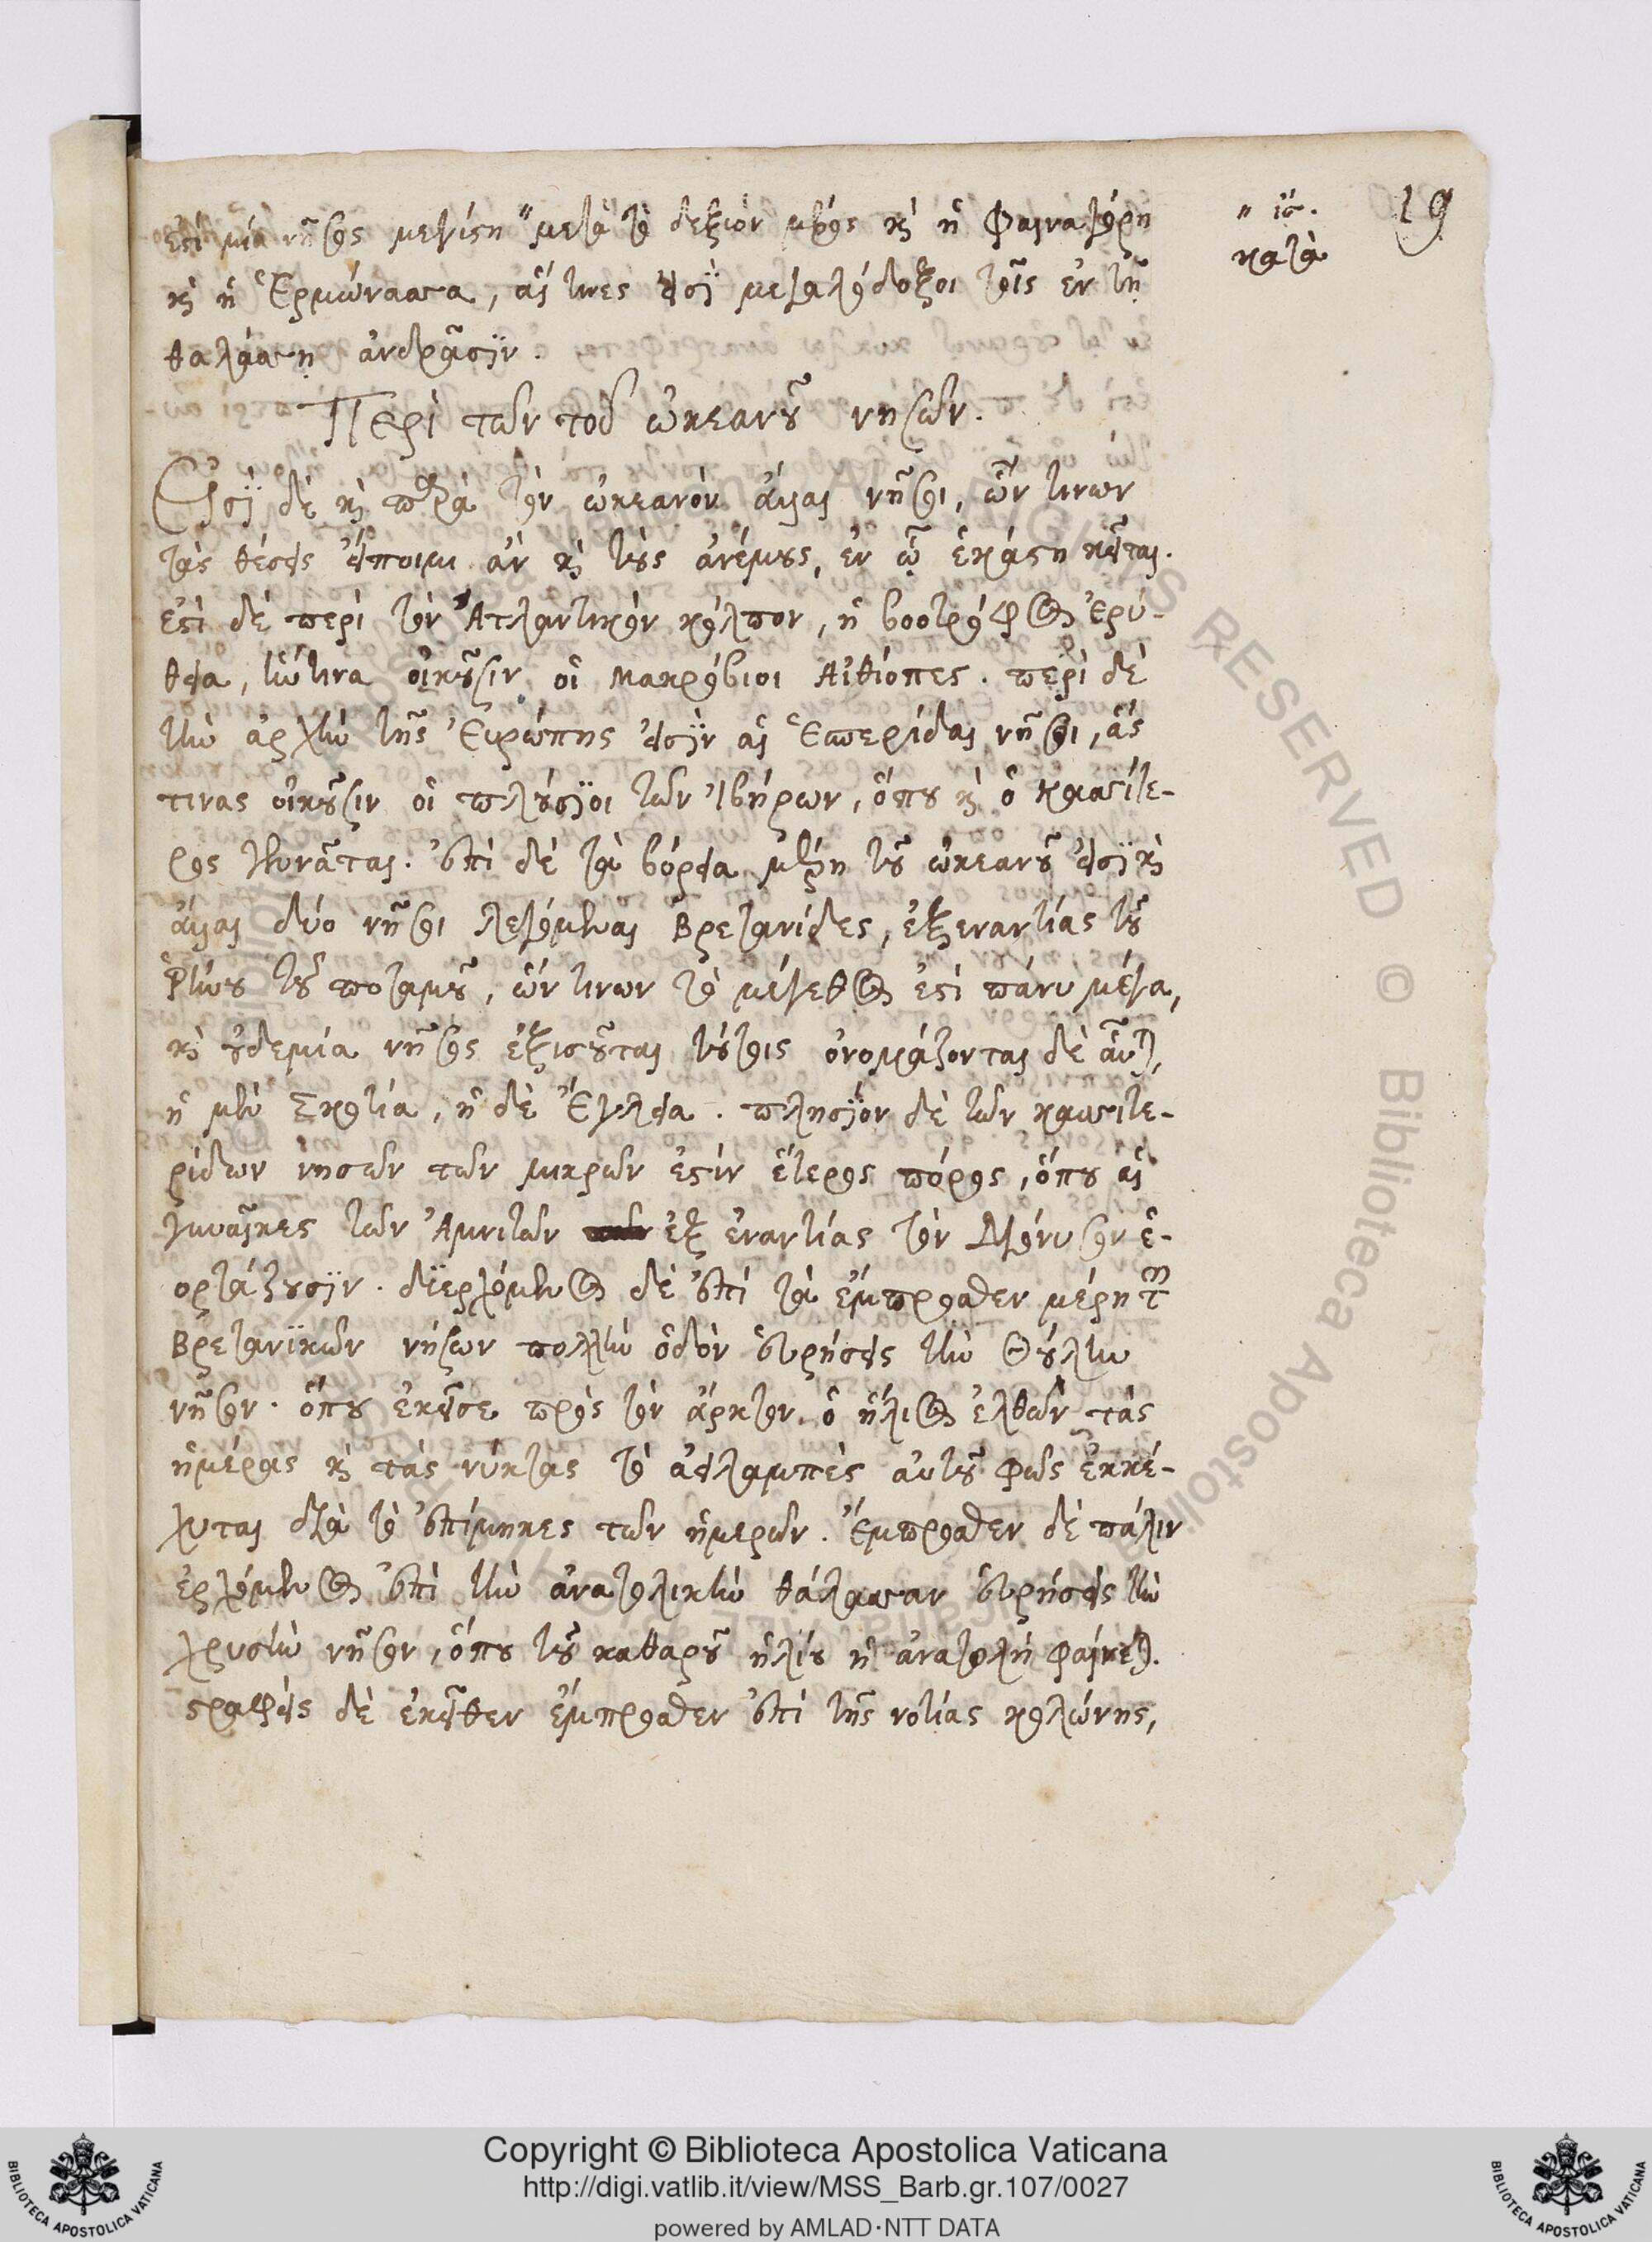 19
" ἴσ.
κατὰ
ἐστὶ μία νῆσος μεγίστη " μετὰ τὸ δεξιὸν μέρος κ̀ ἡ Φαιναγόρη
κ̀ ἡ Ἑρμώνασσα, αἵ τινες εἰσὶ μεγαλόδοξοι τοῖς ἐν τῇ
θαλάσσῃ ἀνδράσιν.
Περὶ τῶν τοῦ ὠκεανοῦ νησῶν.
Εἰσὶ δὲ κ̀ παρὰ τὸν ὠκεανὸν ἄλλαι νῆσοι, ὧν τινων
τὰς θέσεις εἴποιμι ἂν κ̀ τοὺς ἀνέμους, ἐν ᾧ ἑκάστη κεῖται.
ἐστὶ δὲ περὶ τὸν Ἀτλαντικὸν κόλπον, ἡ βοοτρόφος Ἐρύ-
θεια, ἥντινα οἰκοῦσιν οἱ Μακρόβιοι Αἰθίοπες. περὶ δὲ
τὴν ἀρχὴν τῆς Εὐρώπης εἰσὶν αἱ Ἑσπερίδαι νῆσοι, ἅς
τινας οἰκοῦσιν οἱ πλούσιοι τῶν Ἰβήρων, ὅπου κ̀ ὁ κασσίτε-
ρος γεννᾶται. ἐπὶ δὲ τὰ βόρεια μέρη τοῦ ὠκεανοῦ εἰσὶ κ̀
ἄλλαι δύο νῆσοι λεγόμεναι Βρετανίδες, ἐξεναντίας τοῦ
Ῥήνου τοῦ ποταμοῦ, ὧν τινων τὸ μέγεθος ἐστὶ πάνυ μέγα,
κ̀ οὐδεμία νῆσος ἐξισοῦται τούτοις ὀνομάζονται δὲ αὗται,
ἡ μὲν Σκοτία, ἡ δὲ Ἔγλεια. πλησίον δὲ τῶν κασσιτε-
ρίδων νησῶν τῶν μικρῶν ἐστὶν ἕτερος πόρος, ὅπου αἱ
γυναῖκες τῶν Ἀμνιτῶν ἐξ ἐναντίας τὸν Διόνυσον ἑ-
ορτάζουσιν. διερχόμενος δὲ ἐπὶ τὰ ἔμπροσθεν μέρη τῶν
Βρετανϊκῶν νήσων πολλὴν ὁδὸν εὑρήσεις τὴν Θούλην
νῆσον. ὅπου ἐκεῖσε πρὸς τὸν ἄρκτον ὁ ἥλιος ἐλθὼν τὰς
ἡμέρας κ̀ τὰς νύκτας τὸ ἀειλαμπὲς αὐτοῦ φῶς ἐκκέ-
χυται διὰ τὸ ἐπίμηκες τῶν ἡμερῶν. Ἔμπροσθεν δὲ πάλιν
ἐρχόμενος ἐπὶ τὴν ἀνατολικὴν θάλασσαν εὑρήσεις τὴν
χρυσὴν νῆσον, ὅπου τοῦ καθαροῦ ἡλίου ἡ ἀνατολὴ φαίνεται.
στραφεὶς δὲ ἐκεῖθεν ἔμπροσθεν ἐπὶ τῆς νοτίας κολώνης,
Copyright © Biblioteca Apostolica Vaticana
http://digi.vatlib.it/view/MSS_Barb.gr.107/0027
powered by AMLAD·NTT DATA
BIBLIOTECA APOSTOLICA VATICANA
BIBLIOTECA APOSTOLICA VATICANA